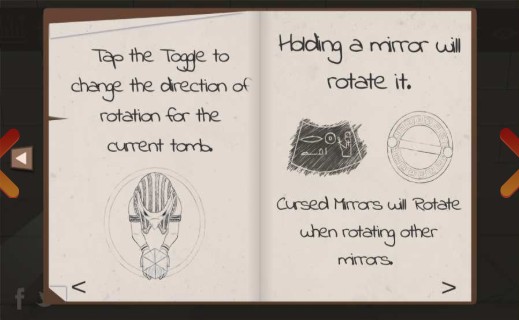 Tap the Toggle to
change the direction of
rotation for the
current tomb.
Holding a mirror will
rotate it.
Cursed Mirrors will Rotate
when rotating other
mirrors.